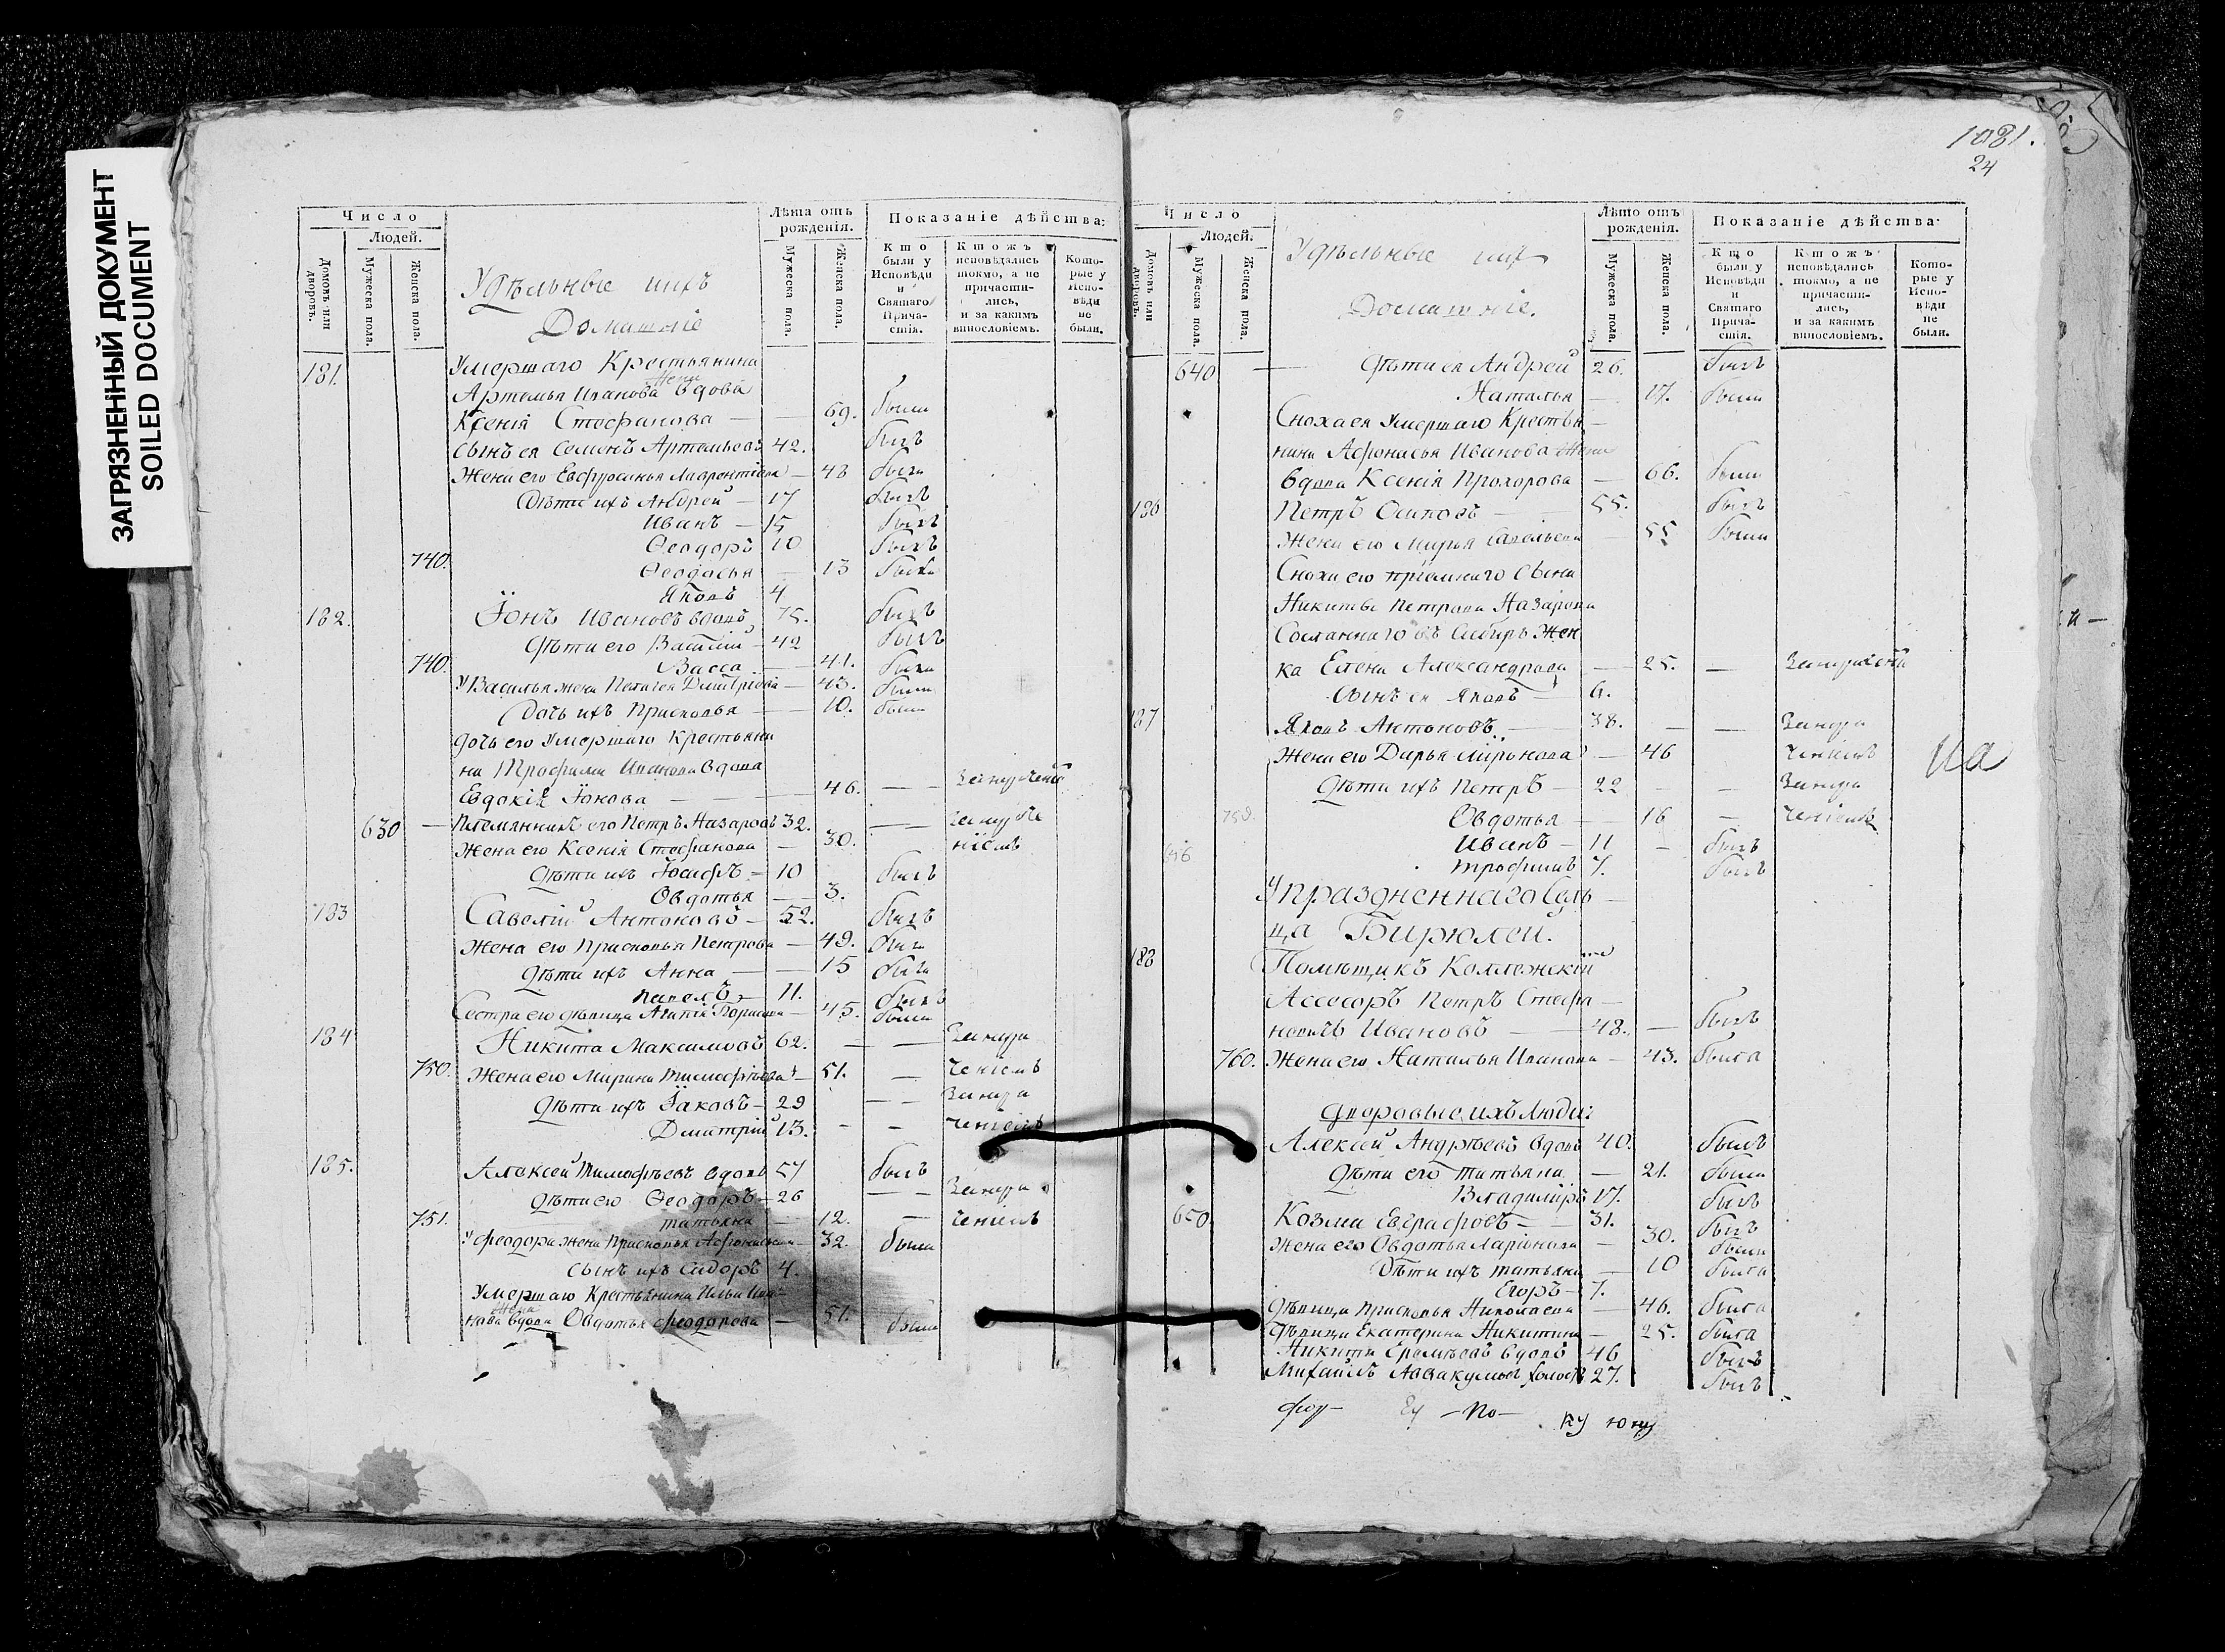 ЗАГРЯЗНЕННЫЙ ДОКУМЕНТ
SOILED DOCUMENT
Число
Домовъ или дворовъ.
Людей.
Мужеска пола.
Женска пола.
Удѣльные ихъ
Домашніе
Лѣта отъ рожденія.
Мужеска пола.
Женска пола.
Показаніе дѣйства:
Кто были у Исповѣди и Святаго Прича-стія.
Ктожъ исповѣдались токмо, а не причасти-лись, и за какимъ винословіемъ.
Кото-рые у Испо-вѣди не были.
181. Умершаго Крестьянина
Артемья Иванова жена вдова
Ксенія Стефанова — — 69. была
сынъ ея Семенъ Артемьевъ 42. былъ
Жена его Евфросинья Лаврентьева — 48 была
Дѣти ихъ Андрей — 17 былъ
Иванъ — 15 былъ
Ѳеодоръ 10 былъ
740. Ѳеодосья — 13 была
Яковъ 4
182. Іонъ Ивановъ вдовъ 75. былъ
Дѣти его Василій — 42 былъ
740. Васса — 41. была
У Василья жена Пелагея Димитріева — 43. была
Дочь ихъ Присковья — 10. была
дочь его Умершаго Крестьяни
на Трофима Иванова вдова
Евдокія Іонова — 46. — —
630 — Племянникъ его Петръ Назаровъ 32. — —
Жена его Ксенія Стефанова — 30.
Дѣти ихъ Іосифъ — 10 былъ
Овдотья — 3.
183 Савелій Антоновъ — 52. былъ
Жена его Присковья Петрова — 49. была
Дѣти ихъ Анна — — 15 была
Павелъ — 11. былъ
Сестра его дѣвица — 45. была
184 Никита Максимовъ 62. — —
750. Жена его Марина Тимофѣева — 51. —
Дѣти ихъ Іаковъ — 29 — —
Дмитрій 13. — —
185. Алексей Тимофѣевъ вдовъ 57 былъ
Дѣти его Ѳеодоръ — 26 — —
751. татьяна — 12. —
У Феодора жена Присковья Афонасьева — 32. была
сынъ ихъ Сидоръ 4.
Умершаго Крестьянина Ильи Ива
нова жена вдова Овдотья Феодорова — 51. была
1081.
24
Число
Домовъ или дворовъ.
Людей.
Мужеска пола.
Женска пола.
Удѣльные ихъ
Домашніе.
Лѣто отъ рожденія.
Мужеска пола.
Женска пола.
Показаніе дѣйства
Кто были у Исповѣди и Святаго Прича-стія.
Ктожъ исповѣдались токмо, а не причасти-лись, и за какимъ винословіемъ.
Кото-рые у Испо-вѣди не были.
640 — Дѣти ея Андрей 26. былъ
Наталья — 17. была
Сноха ея Умершаго Крестья —
нина Афонасья Иванова жена
вдова Ксенія Прохорова — 66. была
186 Петръ Осиповъ — 55. былъ
Жена его Марья Савельева — 55 была
Сноха его пріемнаго сына
Никиты Петрова Назарова
Сосланнаго въ Сибирь Жен
ка Елена Александрова — 25. —
сынъ ея Яковъ 6.
187 Яковъ Антоновъ. — 38. — —
Жена его Дарья Міронова — 46
Дѣти ихъ Петръ — 22 — —
Овдотья — 16 —
Иванъ — 11 — былъ
Трофимъ 7. былъ
Упраздненнаго Сель
ца Бирюлей.
188 Помѣщикъ Коллежскій
Ассесоръ Петръ Стефа —
новичъ Ивановъ — 48. — былъ
760. Жена его Наталья Иванова — 43. была
Дворовые ихъ люди:
Алексей Андрѣевъ вдовъ 40. былъ
Дѣти его татьяна — 21. была
Владиміръ 17. былъ
650. Козма Евграфовъ — 31. былъ
Жена его Овдотья Ларіонова — 30. была
Дѣти ихъ татьяна — 10 была
Егоръ — 7.
Дѣвица Присковья Николаева — 46. была
Дѣвица Екатерина Никитина — 25. была
Никита Еремѣевъ вдовъ 46 былъ
Михаилъ Аввакумовъ холостъ 27. былъ